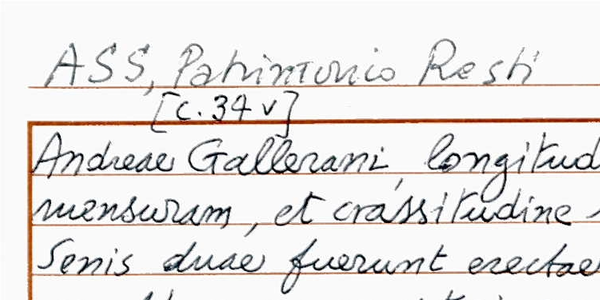 ASS, Patrimonio Resti
[c. 34 v]
Andreae Gallerani, longitud
mensuram, et crassitudine
Senis duae fuerunt erectae